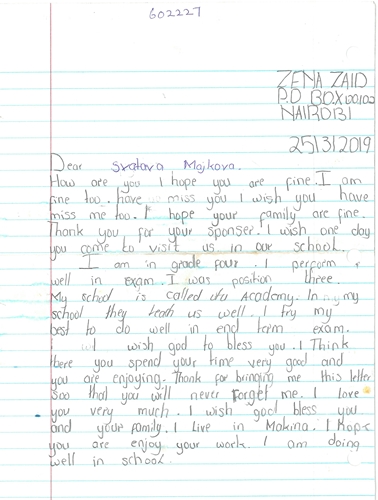 602227
ZENA ZAID
P.O BOX 00100
NAIROBI
25/3/2019
Dear Svatava Majkova.
How are you I hope you are fine. I am
fine too. have miss you I wish you have
miss me too. I hope your family are fine.
Thank you for your sponser. I wish one day
you come to visit us in our school.
I am in grade four. I perform
well in exam. I was position three.
My school is called Academy. In my
school they teath us well. I try my
best to do well in end term exam.
wish god to bless you. I Think
there you spend your time very good and
you are enjoying. Thank for bringing me this letter
soo that you will never Forget me. I love
you very much. I wish god bless you
and your family. I live in Makina. I Hope
you are enjoy your work. I am doing
well in school.